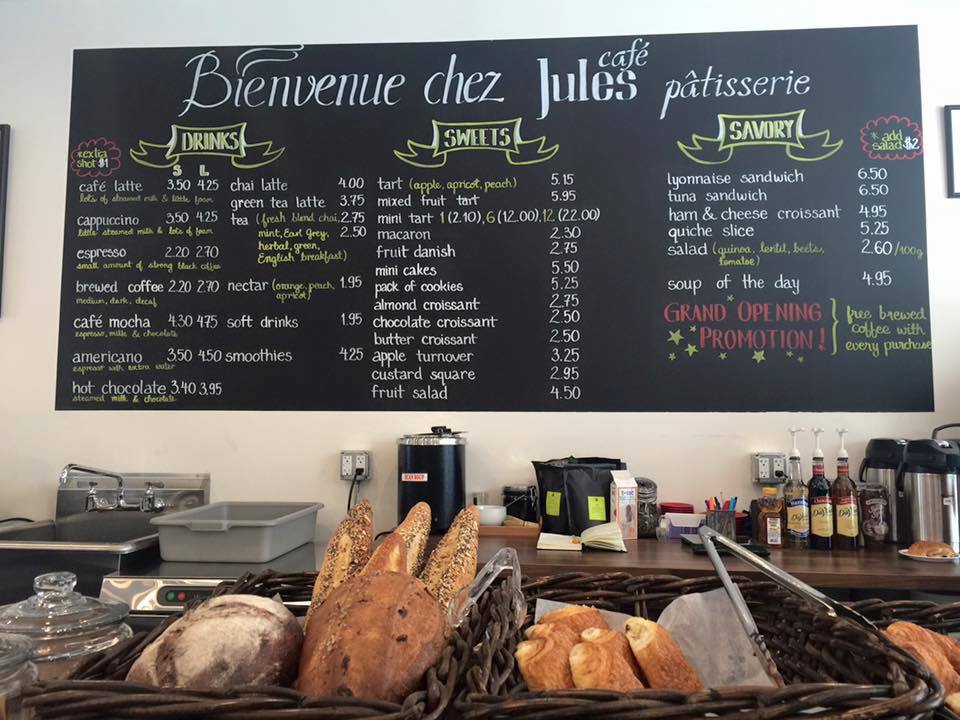 Bienvenue chez Jules café pâtisserie
DRINKS
*extra shot $1
S L
café latte 3.50 4.25
lots of steamed milk & little foam
cappuccino 3.50 4.25
little steamed milk & lots of foam
espresso 2.20 2.70
small amount of strong black coffee
brewed coffee 2.20 2.70
medium, dark, decaf
café mocha 4.30 4.75
espresso, milk & chocolate
americano 3.50 4.50
espresso with extra water
hot chocolate 3.40 3.95
steamed milk & chocolate
chai latte 4.00
green tea latte 3.75
tea (fresh blend chai, 2.75
mint, Earl Grey, 2.50
herbal, green,
English breakfast)
nectar (orange, peach, 1.95
apricot)
soft drinks 1.95
smoothies 4.25
SWEETS
tart (apple, apricot, peach) 5.15
mixed fruit tart 5.95
mini tart 1 (2.10), 6 (12.00), 12 (22.00)
macaron 2.30
fruit danish 2.75
mini cakes 5.50
pack of cookies 5.25
almond croissant 2.75
chocolate croissant 2.50
butter croissant 2.50
apple turnover 3.25
custard square 2.95
fruit salad 4.50
SAVORY
*add salad $2
lyonnaise sandwich 6.50
tuna sandwich 6.50
ham & cheese croissant 4.95
quiche slice 5.25
salad (quinoa, lentil, beets, 2.60/100g
tomatoe)
soup of the day 4.95
GRAND OPENING
PROMOTION!
free brewed
coffee with
every purchase